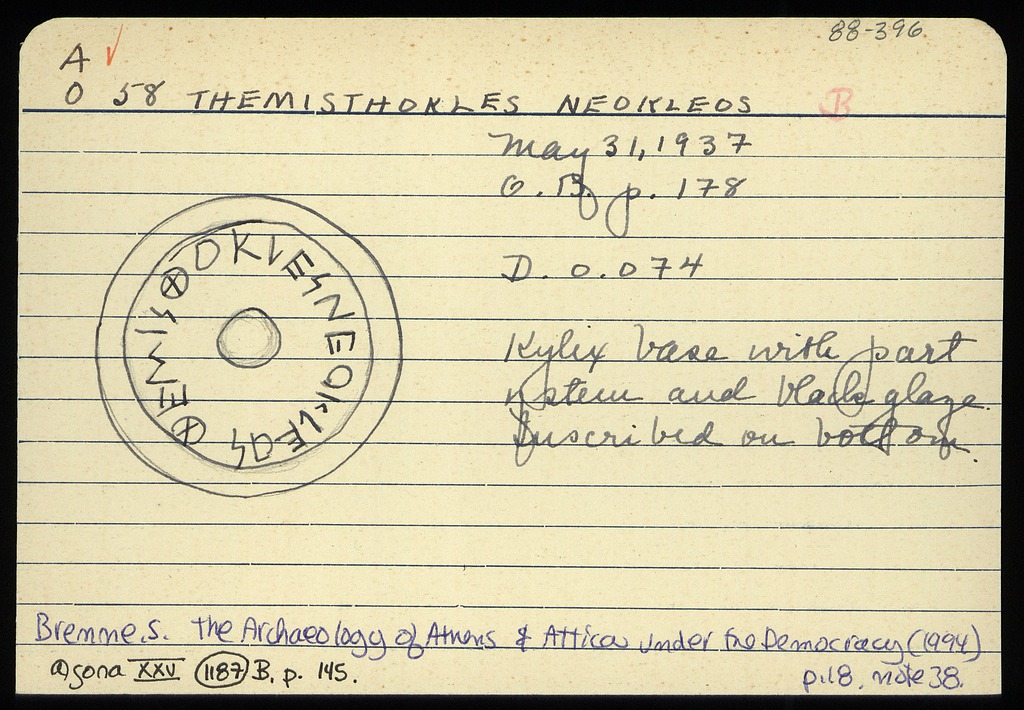 88-396
A ✓
O 58 THEMISTHOKLES NEOKLEOS B
May 31, 1937
O.B. p. 178
D. 0.074
ⴲEMISⴲOKLESNEOKLEOS
Kylix base with part
stem and black glaze.
Inscribed on bottom.
The Archaeology of Athens & Attica under the Democracy (1994)
p.18, note 38.
Agora XXV (1187) B, p. 145.